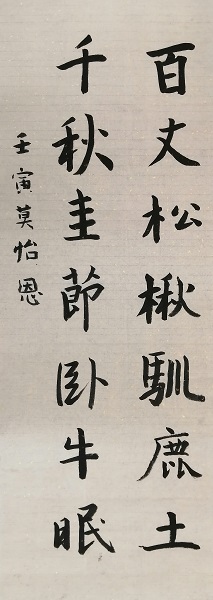 百丈松楸馴鹿土
千秋圭節卧牛眠
壬寅莫怡恩